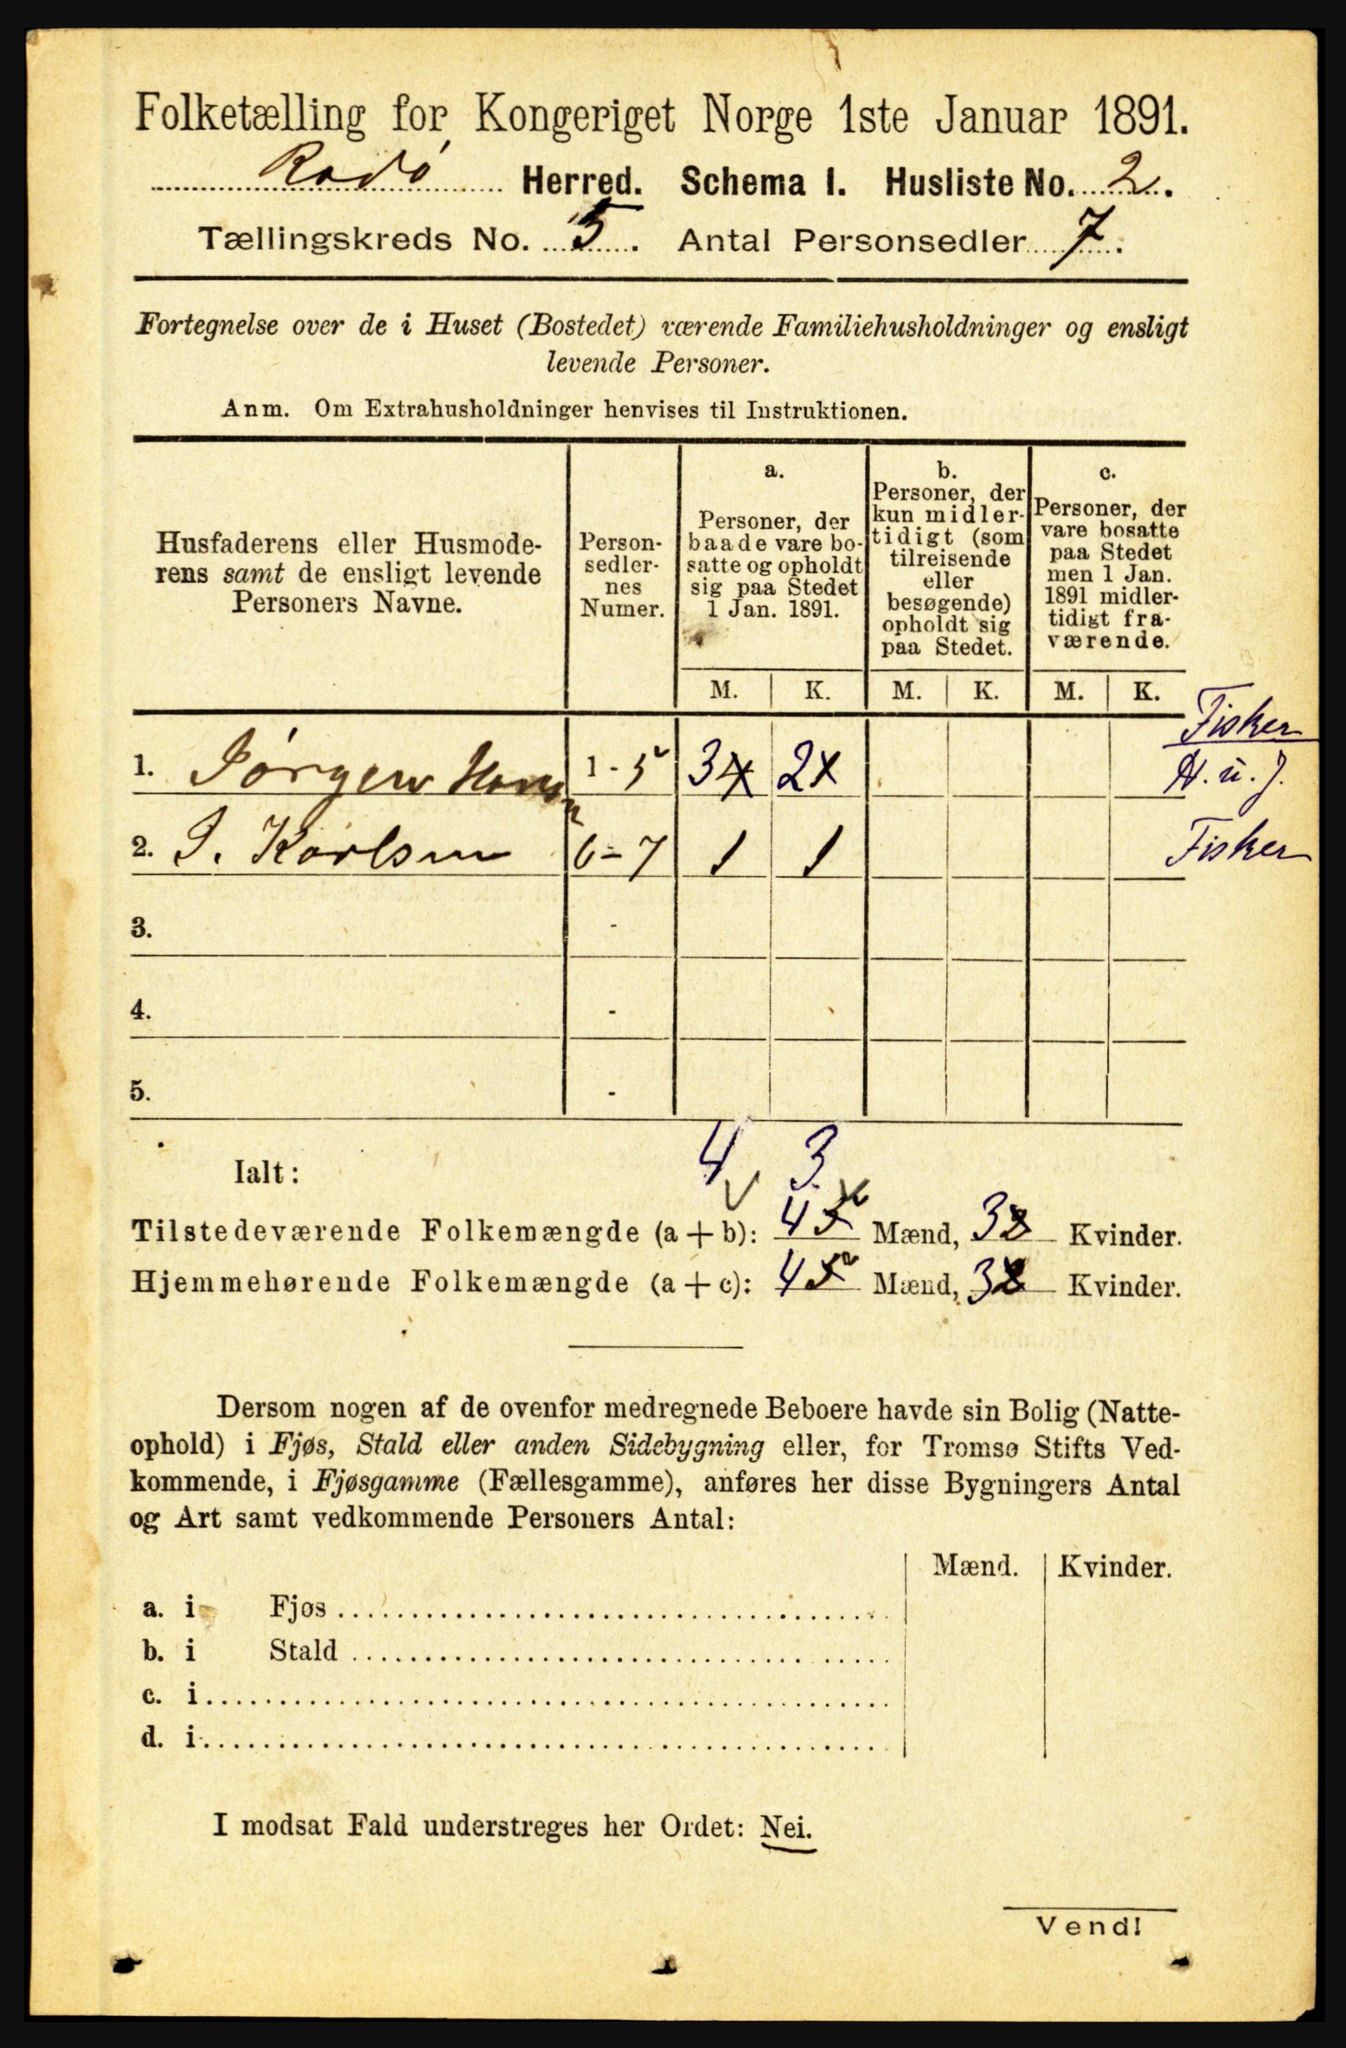 Folketælling for Kongeriget Norge 1ste Januar 1891.
Rodø Herred. Schema I. Husliste No. 2.
Tællingskreds No. 5. Antal Personsedler 7.
Fortegnelse over de i Huset (Bostedet) værende Familiehusholdninger og ensligt
levende Personer.
Anm. Om Extrahusholdninger henvises til Instruktionen.
Husfaderens eller Husmode-
rens samt de ensligt levende
Personers Navne.
Person-
sedler-
nes
Numer.
a.
Personer, der
baade vare bo-
satte og opholdt
sig paa Stedet
1 Jan. 1891.
b.
Personer, der
kun midler-
tidigt (som
tilreisende
eller
besøgende)
opholdt sig
paa Stedet.
c.
Personer, der
vare bosatte
paa Stedet
men 1 Jan.
1891 midler-
tidigt fra-
værende.
M. K. M. K. M. K.
Fisker
1. Jørgen Hansen 1 - 5 3 2 H. u. J.
2. J. Karlsen 6 - 7 1 1 Fisker
3. -
4. -
5. -
Ialt: 4 3
Tilstedeværende Folkemængde (a + b): 4 5 Mænd, 3 2 Kvinder.
Hjemmehørende Folkemængde (a + c): 4 5 Mænd, 3 2 Kvinder.
Dersom nogen af de ovenfor medregnede Beboere havde sin Bolig (Natte-
ophold) i Fjøs, Stald eller anden Sidebygning eller, for Tromsø Stifts Ved-
kommende, i Fjøsgamme (Fællesgamme), anføres her disse Bygningers Antal
og Art samt vedkommende Personers Antal:
Mænd. Kvinder.
a. i Fjøs
b. i Stald
c. i
d. i
I modsat Fald understreges her Ordet: Nei.
Vend!